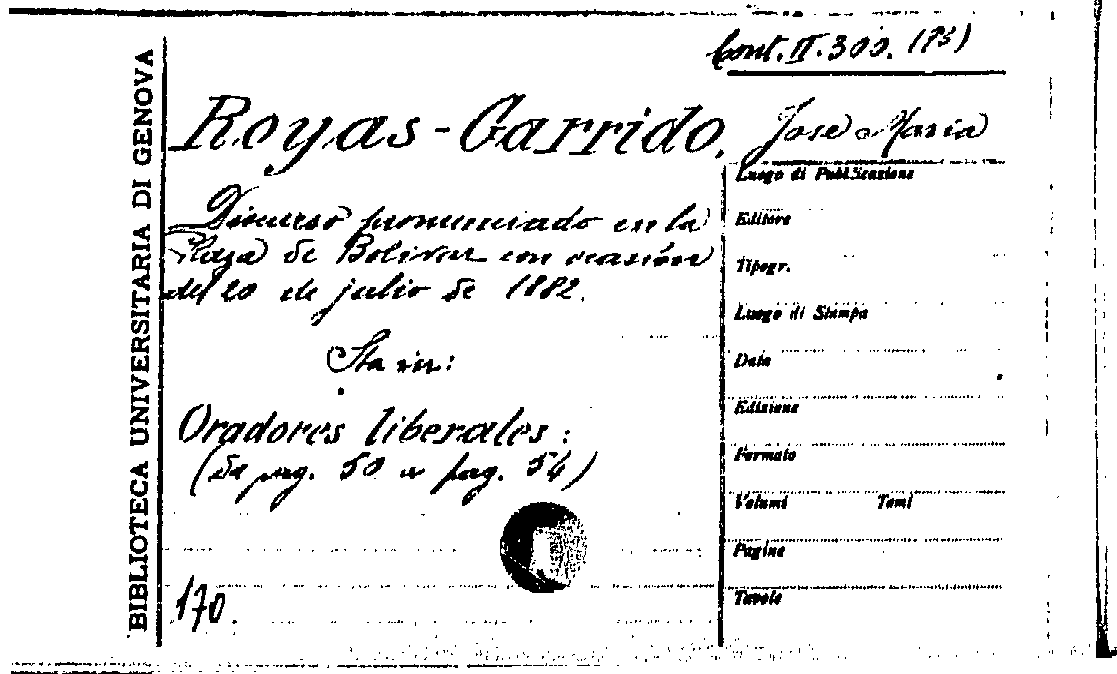 Cont. II. 300. (73)
Royas-Garrido, José Maria
BIBLIOTECA UNIVERSITARIA DI GENOVA
Discurso pronunciado en la
Plaza de Bolivar con ocasión
del 20 de julio de 1882.
Sta in:
Oradores liberales:
(da pag. 50 a pag. 54)
170.
Luogo di Pubblicazione
Editore
Tipogr.
Luogo di Stampa
Data
Edizione
Formato
Volumi Tomi
Pagine
Tavole